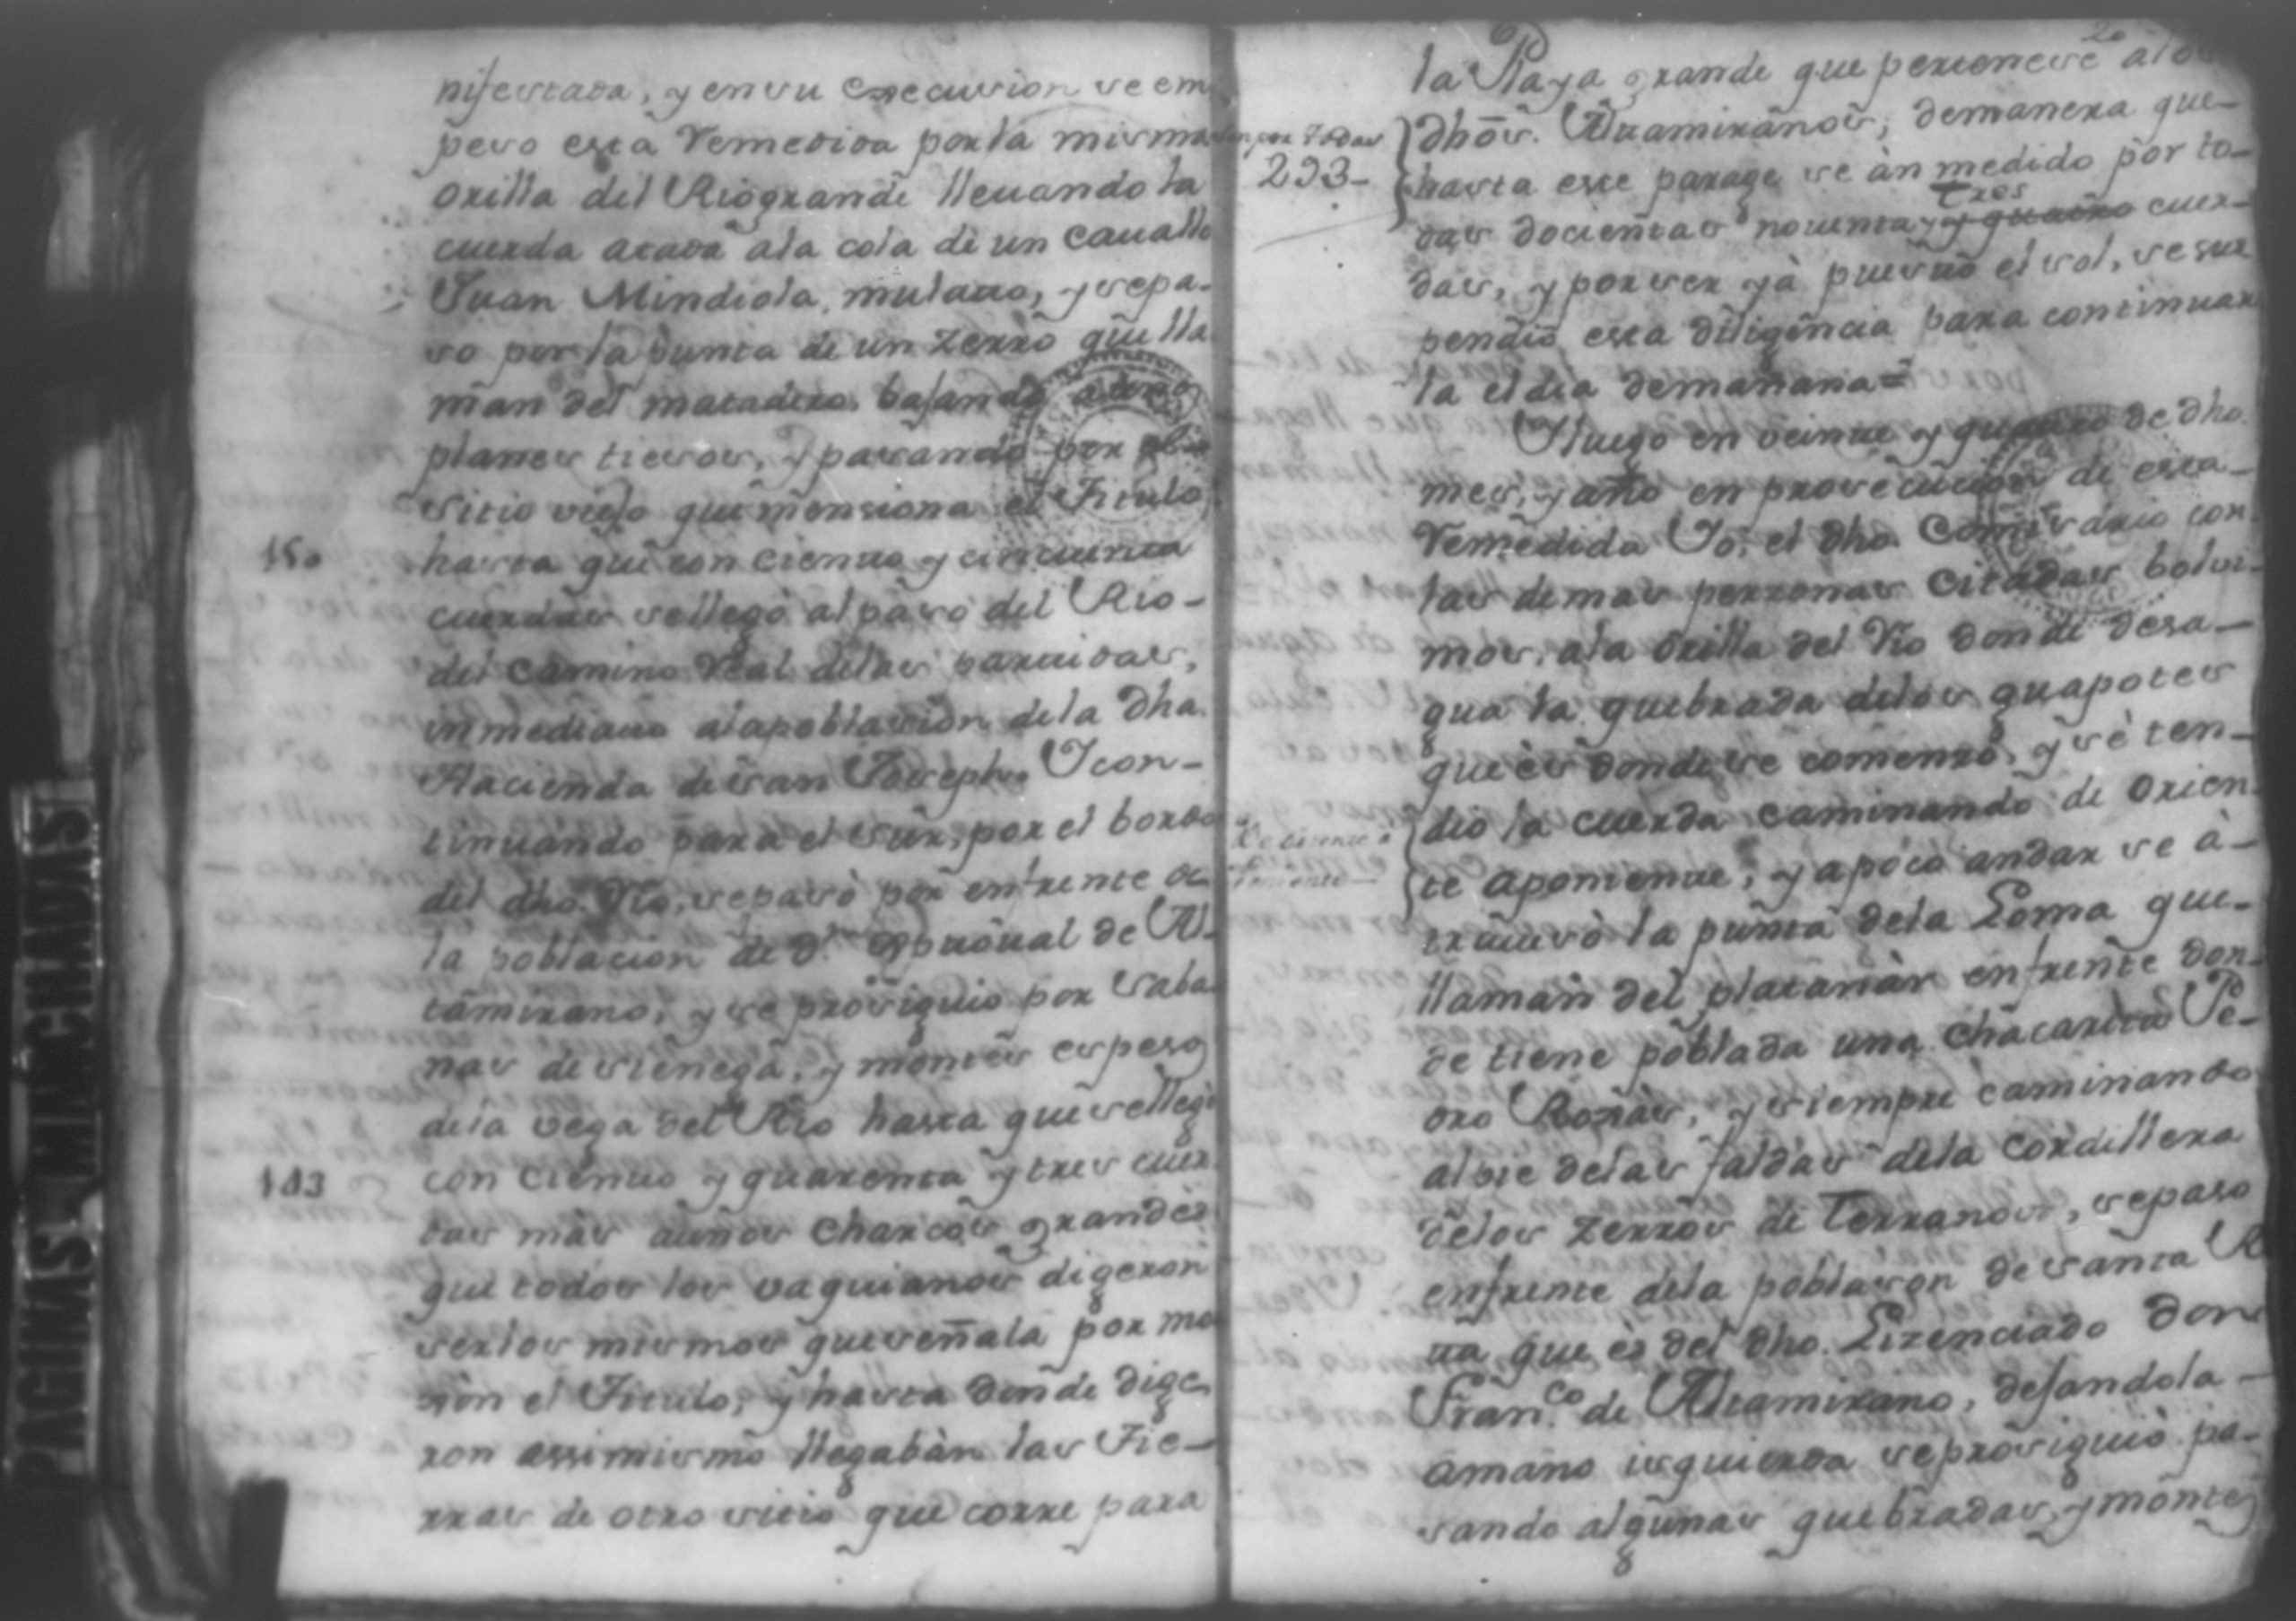 nifestada, y en su execusion se em
peso esta remedida por la misma
orilla del Riogrande lleuando la
cuerda atada a la cola de un cauallo
Juan Mindiola, mulatto, y se pa-
so por la punta de un zerro que lla
man del matadero bajando a unos
planes tiesos, y pasando por el
sitio viejo que mensiona el Titulo
150
hasta que con ciento y cincuenta
cuerdas se llegò al paso del Rio-
del camino real de las
inmediato a la poblasion de la dha.
Hacienda de san Joseph. Y con-
tinuando para el sur, por el bordo
del dho. Rio, se pasò por enfrente de
la poblacion de de Al-
tamirano, y se prosiguio por saba
nas de sienega, y montes espesos
de la vega del Rio hasta que se llegò
143
con ciento y quarenta y tres cuer
das mas a unos charcos grandes
que todos los vaquianos digeron
ser los mismos que señala por mo
xon el Titulo, y hasta donde dige
ron assimismo llegabàn las Tie-
rras de otro sitio que corre para
20
la Playa grande que pertenese a los
dhõs. Altamiranos, demanera que
son por todas
293-
hasta este parage se àn medido por to-
tres
das docientas nouenta y y quatro cuer-
das, y por ser yà puesto el sol, se sus
pendio esta diligencia para continuar
la el dia demañana=
Y luego en veinte y quatro de dho.
mes, y año en prosecucion de esta
remedida Yo, el dho. Comisario con
las demas perzonas citadas bolui-
mos, a la orilla del Rio donde desa-
gua la quebrada de los guapotes
que es donde se comenzò, y se ten-
De oriente a
Poniente-
dio la cuerda caminando de orien
te a poniente, y a poco andar se a-
trauesò la punta de la Loma que
llaman del platanar enfrente don
de tiene poblada una chacarita Pe-
dro Roxas, y siempre caminando
al pie de las faldas de la cordillera
de los zerros de terranoua, se paso
enfrente de la poblason de santa R
ita que es del dho. Lizenciado Don
Fran.co de Altamirano, dejandola
a mano isquierda se prosiguiò pa-
sando algunas quebradas, y montes
PAGINAS MANCHADAS